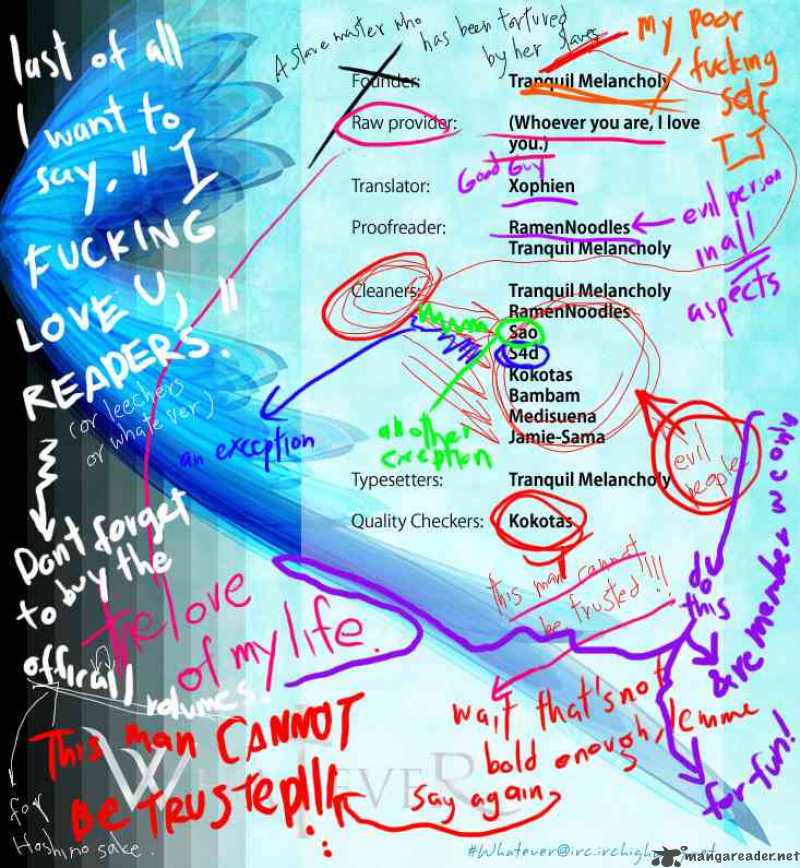 last of all
I want to
say, "I
FUCKING
LOVE U,
READERS."
(or leechers
or whatever)
Dont forget
to buy the
official
volumes.
for
Hoshino sake.
A slave master who
has been tortured
by her slaves
my poor
fucking
self
T_T
Founder: Tranquil Melancholy
Raw provider: (Whoever you are, I love
you.)
Good Guy
Translator: Xophien
Proofreader: RamenNoodles
Tranquil Melancholy
evil person
in all
aspects
Cleaners: Tranquil Melancholy
RamenNoodles
Sao
S4d
Kokotas
Bambam
Medisuena
Jamie-Sama
an exception
another
exception
evil
people
Typesetters: Tranquil Melancholy
Quality Checkers: Kokotas
This man cannot
be trusted!!!
the love
of my life.
wait that's not
bold enough, lemme
say again
This man CANNOT
BE TRUSTED!!!
remember we only
do
this
for fun!
#Whatever@irc.irchigh
mangareader.net